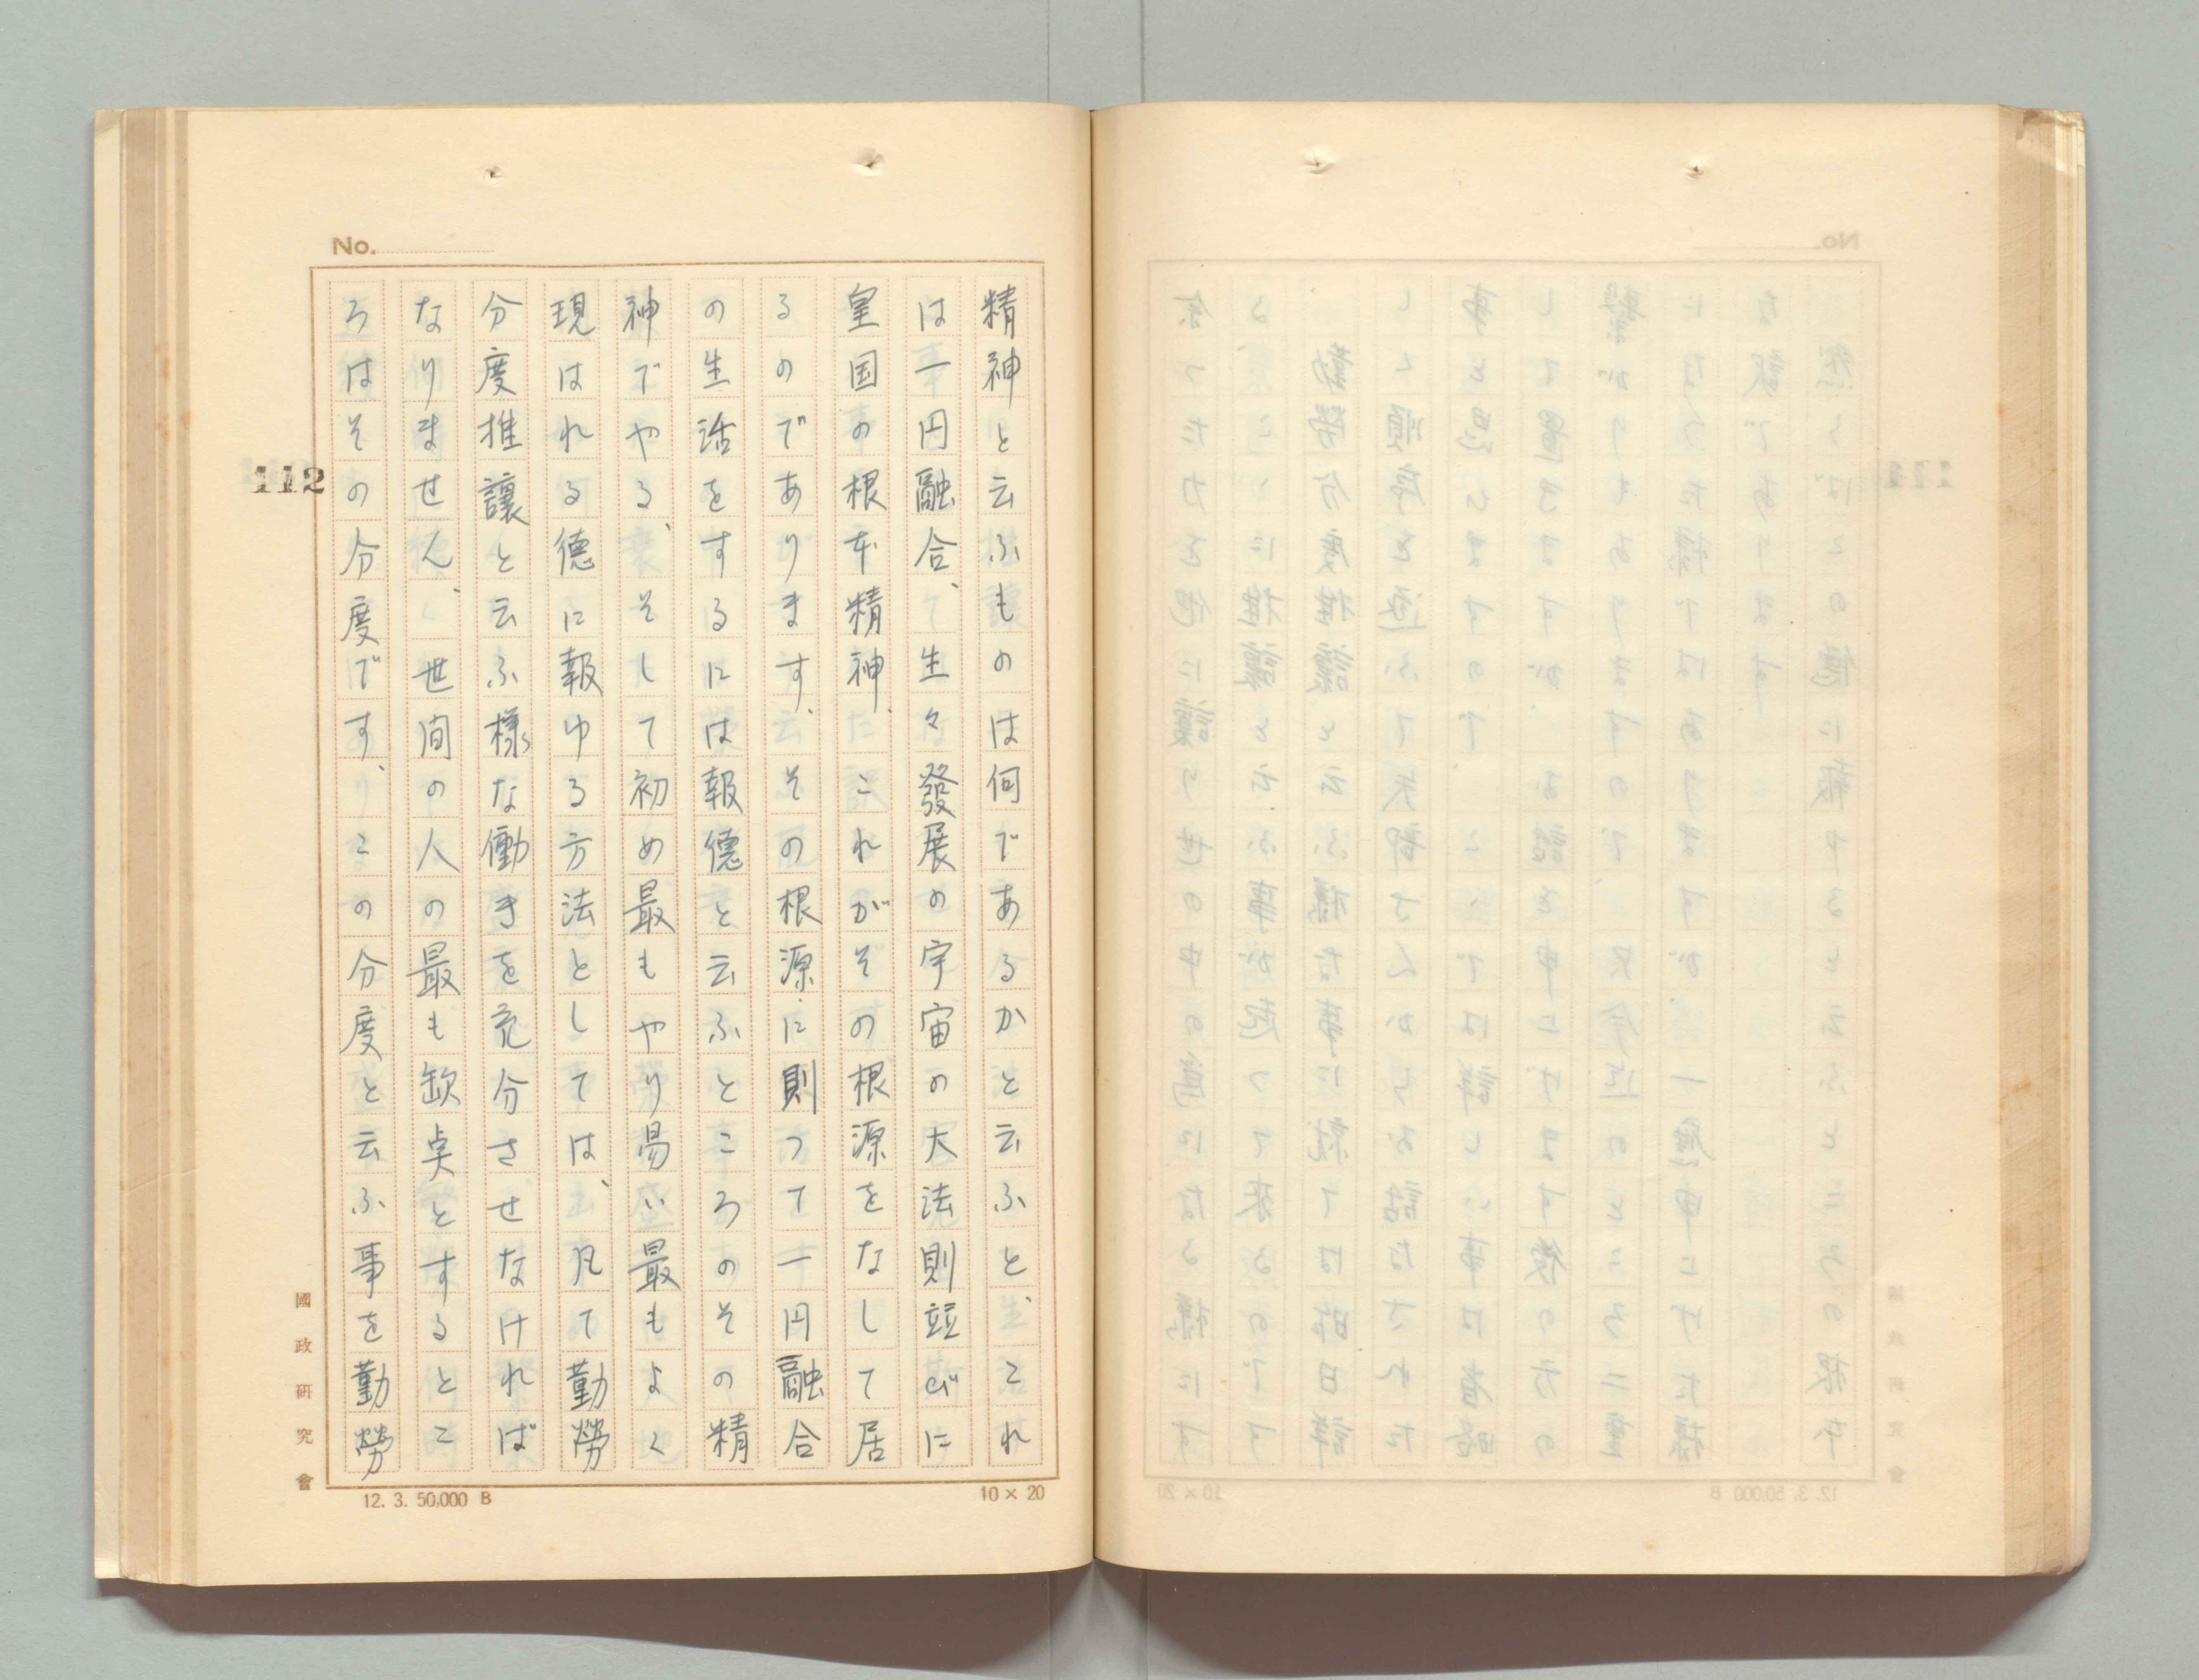 No.
112
精神と云ふものは何であるかと云ふと、これ
は一円融合、生々發展の宇宙の大法則竝びに
皇国の根本精神、これがその根源をなして居
るのであります、その根源に則って一円融合
の生活をするには報德と云ふところのその精
神でやる、そして初め最もやり易い最もよく
現はれる德に報ゆる方法としては、凡て勤勞
分度推讓と云ふ様な働きを充分させなければ
なりません、世間の人の最も缺点とするとこ
ろはその分度です、この分度と云ふ事を勤勞
國政研究會
12. 3. 50,000 B
10×20